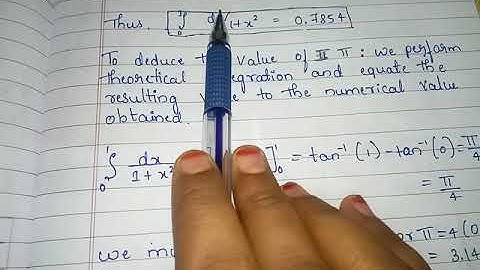 Thus, ∫₀¹ d 1+x² = 0.7854
To deduce value of π : we perform
theoretical and equate the
resulting to the numerical value
obtained.
∫₀¹ dx/1+x² ]₀¹ = tan⁻¹(1) - tan⁻¹(0) = π/4
= π/4
we π = 4(0
= 3.14